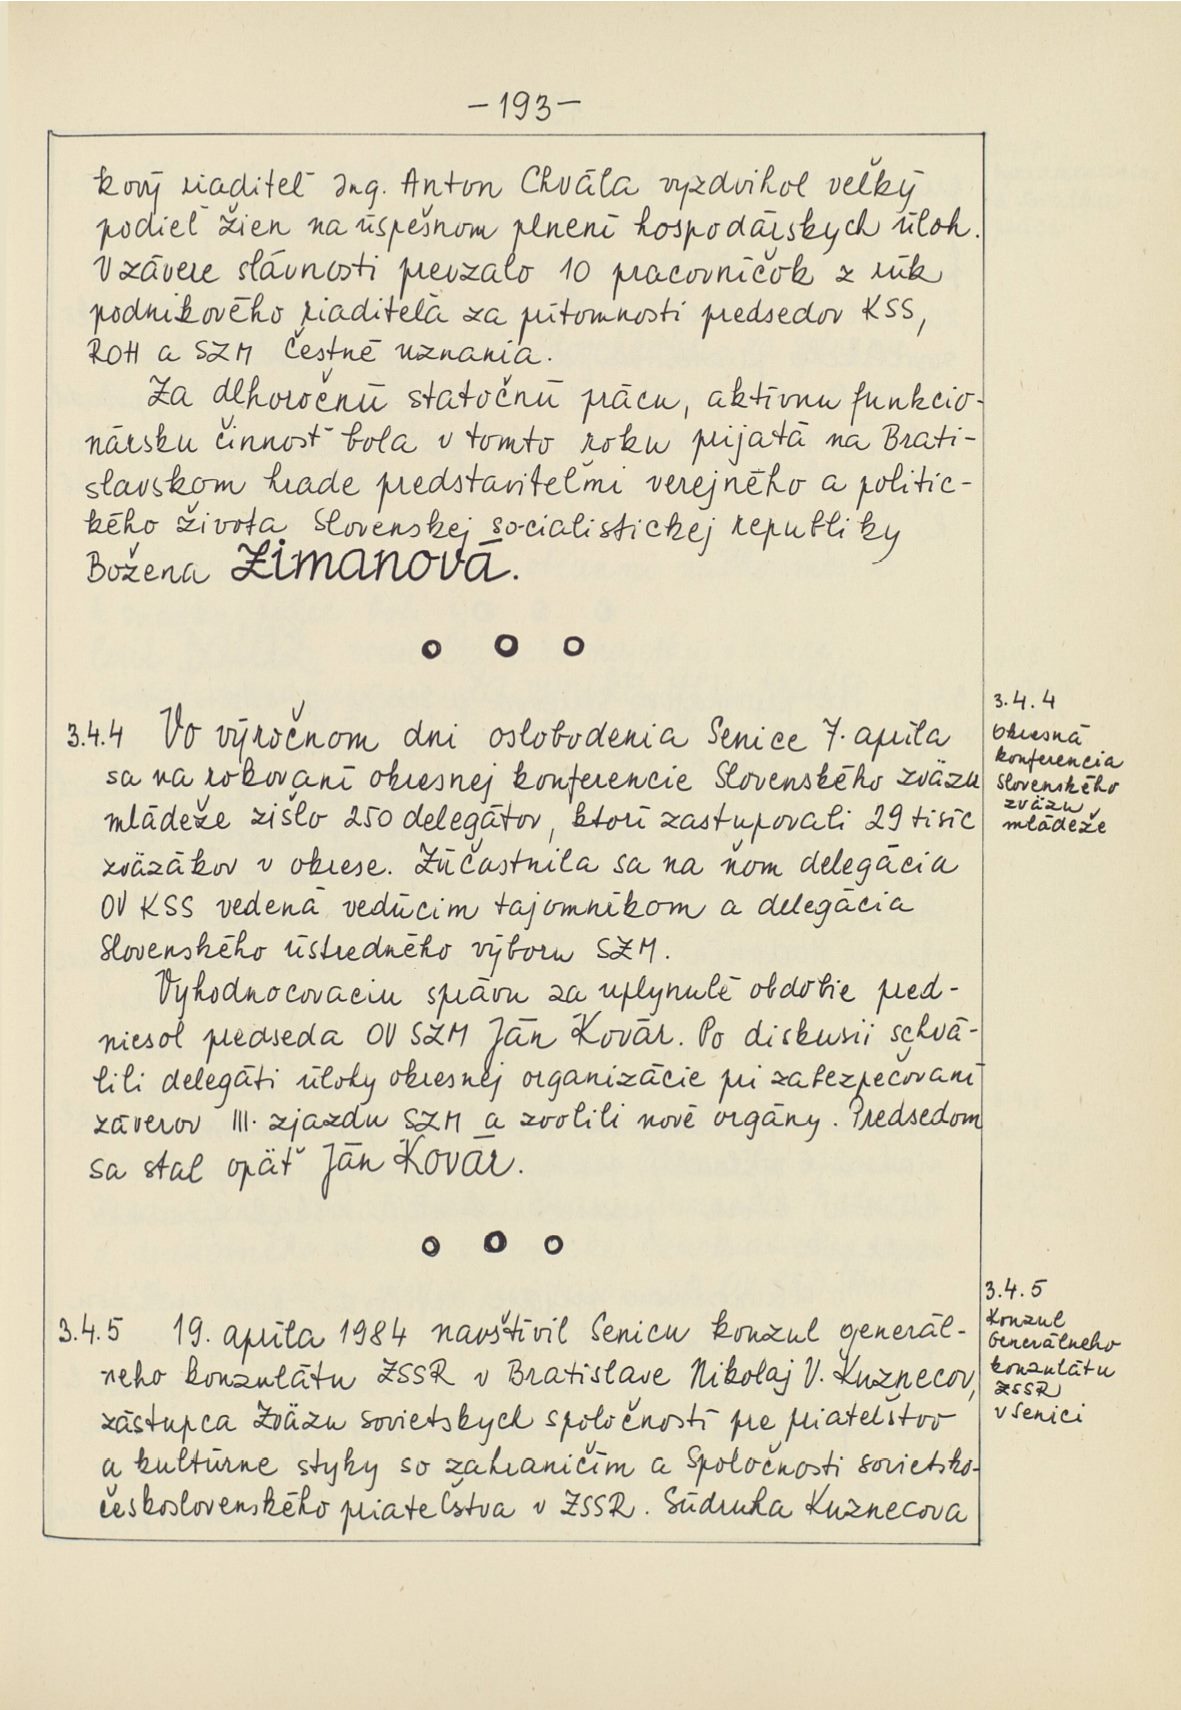 -193-
kový riaditeľ Ing. Anton Chvála vyzdvihol veľký
podiel žien na úspešnom plnení hospodárskych úloh.
V závere slávnosti prevzalo 10 pracovníčok z rúk
podnikového riaditeľa za prítomnosti predsedov KSS,
ROH a SZM čestné uznania.
Za dlhoročnú statočnú prácu, aktívnu funkcio-
nársku činnosť bola v tomto roku prijatá na Brati-
slavskom hrade predstaviteľmi verejného a politic-
kého života Slovenskej socialistickej republiky
Božena Zimanová.
3.4.4 Vo výročnom dni oslobodenia Senice 7. apríla
sa na rokovaní okresnej konferencie Slovenského zväzu
mládeže zišlo 250 delegátov, ktorí zastupovali 29 tisíc
zväzákov v okrese. Zúčastnila sa na ňom delegácia
OV KSS vedená vedúcim tajomníkom a delegácia
Slovenského ústredného výboru SZM.
Vyhodnocovaciu správu za uplynulé obdobie pred-
niesol predseda OV SZM Ján Kovár. Po diskusii schvá-
lili delegáti úlohy okresnej organizácie pri zabezpečovaní
záverov III. zjazdu SZM a zvolili nové orgány. Predsedom
sa stal opäť Ján Kovár.
3.4.4
Okresná
konferencia
Slovenského
zväzu
mládeže
3.4.5 19. apríla 1984 navštívil Senicu konzul generál-
neho konzulátu ZSSR v Bratislave Nikolaj V. Kuznecov,
zástupca Zväzu sovietskych spoločností pre priateľstvo
a kultúrne styky so zahraničím a Spoločnosti sovietsko-
československého priateľstva v ZSSR. Súdruha Kuznecova
3.4.5
Konzul
Generálneho
konzulátu
ZSSR
v Senici